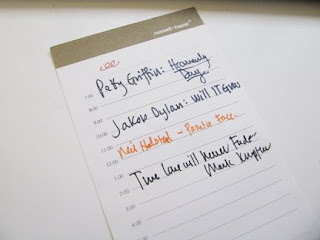 russell+hazel
7:00 Patty Griffin: Heavenly
8:00 Day
9:00
10:00 Jakob Dylan: Will It Grow
11:00
12:00 Neil Halstead -
1:00
2:00 True Love Will Never Fade -
3:00 Mark Knopfler
4:00
5:00